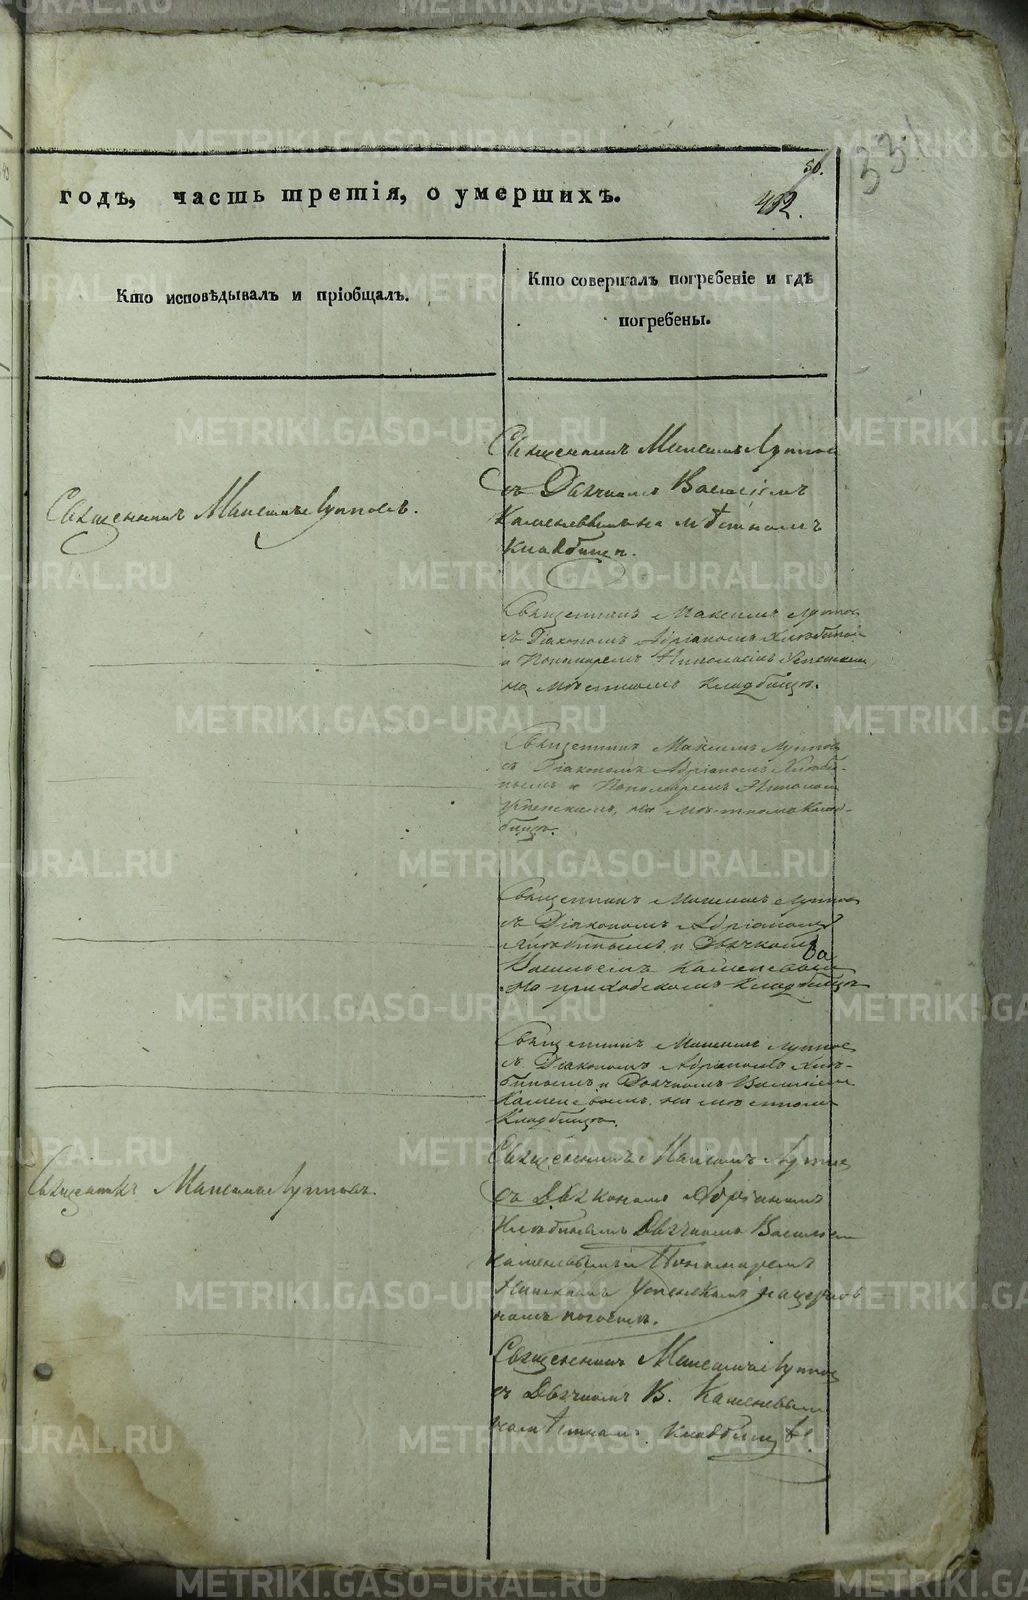 33
50.
492.
годъ, часть третія, о умершихъ.
Кто исповѣдывалъ и пріобщалъ.
Кто совершалъ погребеніе и гдѣ
погребены.
Священникъ Максимъ Лупповъ.
Священникъ Максимъ Луппов
съ Дьячкомъ Васильемъ
Каменевымъ на мѣстномъ
Кладбищѣ.
Священникъ Максимъ Луппов
съ Діакономъ Адріаномъ
и Пономаремъ Николаемъ Успенским
на мѣстномъ кладбищѣ.
Священникъ Максимъ Луппов
съ Діакономъ Адріаномъ
и Пономаремъ
Успенскимъ, на мѣстномъ Клад-
бищѣ.
Священникъ Максимъ Луппов
съ Діакономъ Адріаномъ
и Дьячкомъ
Васильемъ Каменевым
на приходскомъ кладбищѣ
Священникъ Максимъ Луппов
съ Діакономъ Адріаномъ
и Дьячкомъ Василіем
Каменевымъ, на мѣстномъ
Кладбищѣ.
Священникъ Максимъ Лупповъ.
Священникъ Максимъ Луппов
съ Діакономъ Адріаномъ
Дьячкомъ Василіем
Каменевымъ и Пономаремъ
Успенскимъ на церков
номъ погостѣ.
Священникъ Максимъ Луппов
съ Дьячкомъ В. Каменевым
на мѣстномъ кладбищѣ.
METRIKI.GASO-URAL.RU